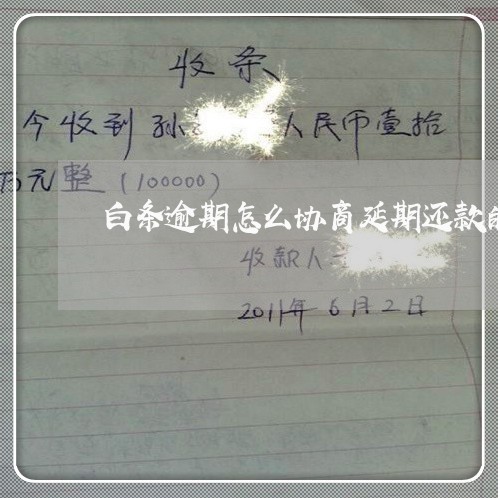 收条
今收到孙 人民币壹拾
万元整（100000）
白条逾期怎么协商延期还款的
收款人
2011年6月2日